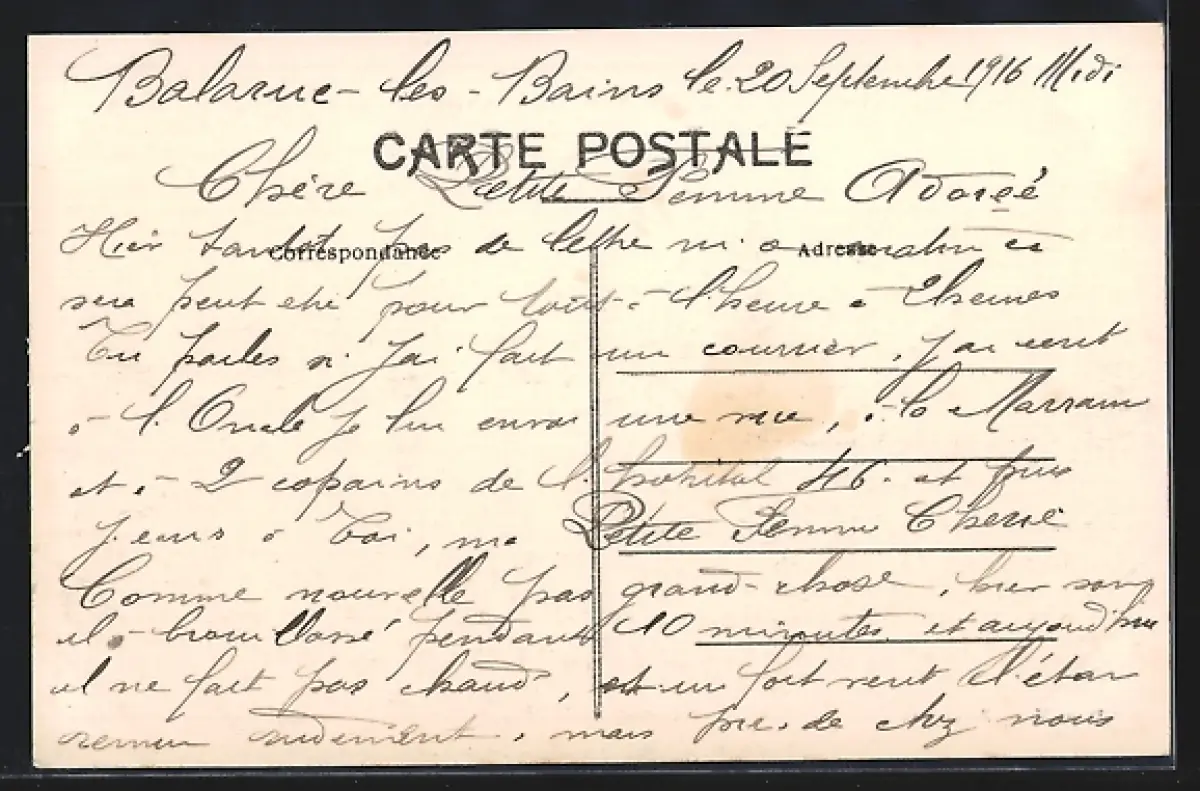 Balaruc-les-Bains le 20 Septembre 1916 Midi
CARTE POSTALE
Chère Petite Femme Adorée
Correspondance
Adresse
Hier tantot pas de lettre ni a matin ce
sera peut etre pour tout à l'heure à 2 heures
Tu parles si j'ai fait un courrier, j'ai ecrit
à l'Oncle je lui envoi une vue, à la Marraine
et à 2 copains de l'hopital 46. et puis
à Toi, ma Petite Femme Cherie
Comme nouvelle pas grand-chose, hier soir
il à brouillassé pendant 10 minutes et aujourd'hui
il ne fait pas chaud, et un fort vent l'étan
remu rudement, mais pres de chez nous